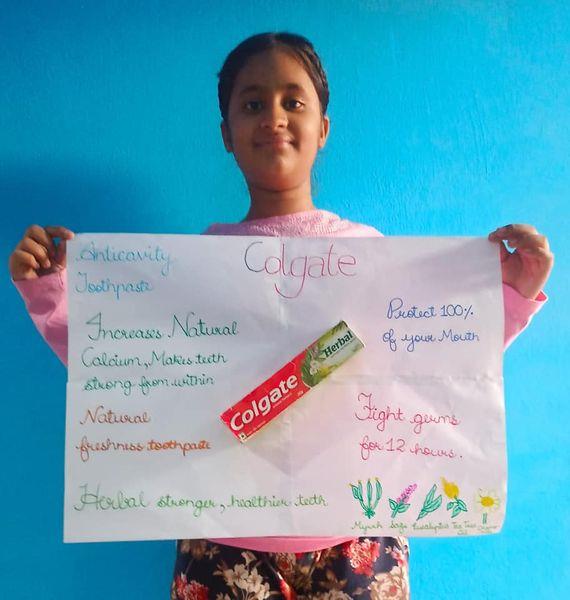 Anticavity
Toothpaste
Colgate
Increases Natural
Calcium, Makes teeth
strong from within
Protect 100%
of your Mouth
Colgate
Herbal
Natural
freshness toothpaste
Fight germs
for 12 hours.
Herbal stronger, healthier teeth
Myrrh Sage Eucalyptus Tea Tree
Oil